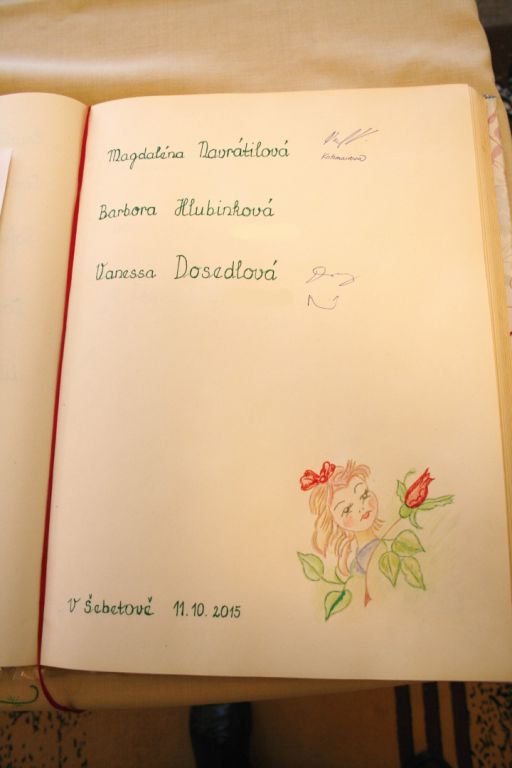 Magdaléna Navrátilová
Barbora Hlubinková
Vanessa Dosedlová
V Šebetově 11.10.2015